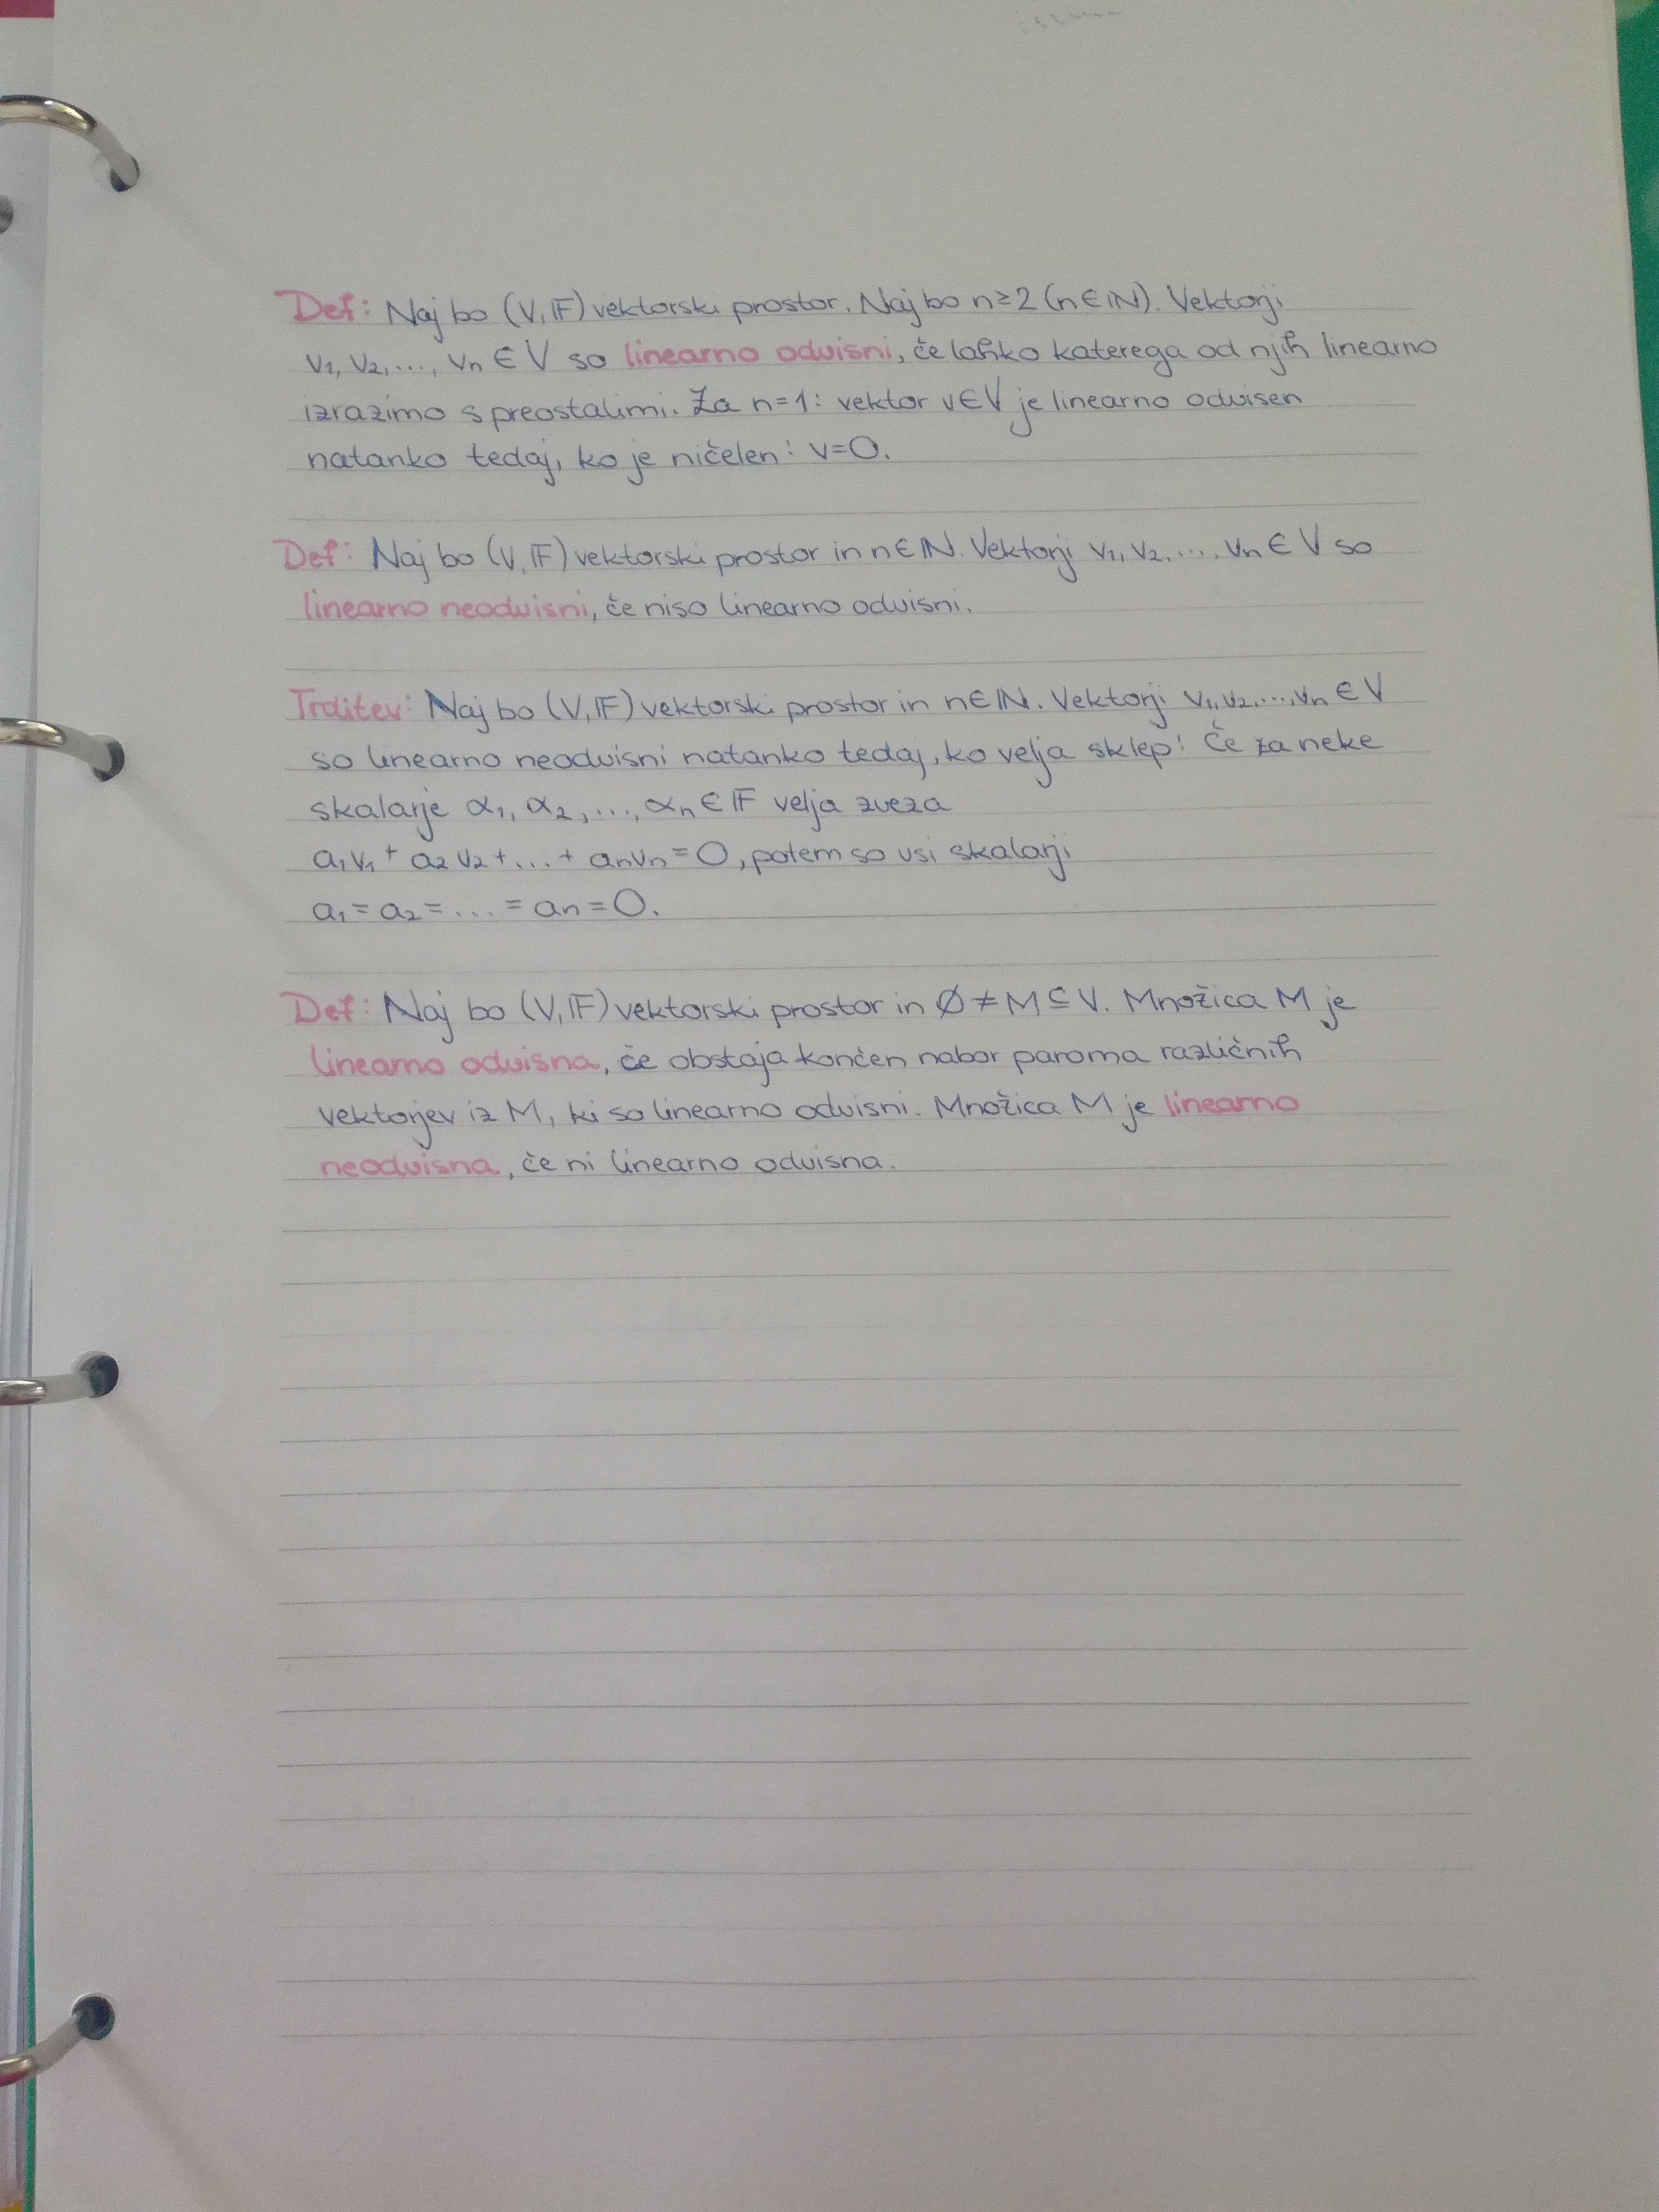 Def: Naj bo (V, 𝔽) vektorski prostor. Naj bo n≥2 (n∈ℕ). Vektorji
v₁, v₂, ..., vₙ ∈ V so linearno odvisni, če lahko katerega od njih linearno
izrazimo s preostalimi. Za n=1: vektor v∈V je linearno odvisen
natanko tedaj, ko je ničelen: v=0.
Def: Naj bo (V, 𝔽) vektorski prostor in n∈ℕ. Vektorji v₁, v₂, ..., vₙ ∈ V so
linearno neodvisni, če niso linearno odvisni.
Trditev: Naj bo (V, 𝔽) vektorski prostor in n∈ℕ. Vektorji v₁, v₂, ..., vₙ ∈ V
so linearno neodvisni natanko tedaj, ko velja sklep: Če za neke
skalarje α₁, α₂, ..., αₙ ∈ 𝔽 velja zveza
a₁v₁ + a₂v₂ + ... + aₙvₙ = 0, potem so vsi skalarji
a₁ = a₂ = ... = aₙ = 0.
Def: Naj bo (V, 𝔽) vektorski prostor in ∅ ≠ M ⊆ V. Množica M je
linearno odvisna, če obstaja končen nabor paroma različnih
vektorjev iz M, ki so linearno odvisni. Množica M je linearno
neodvisna, če ni linearno odvisna.